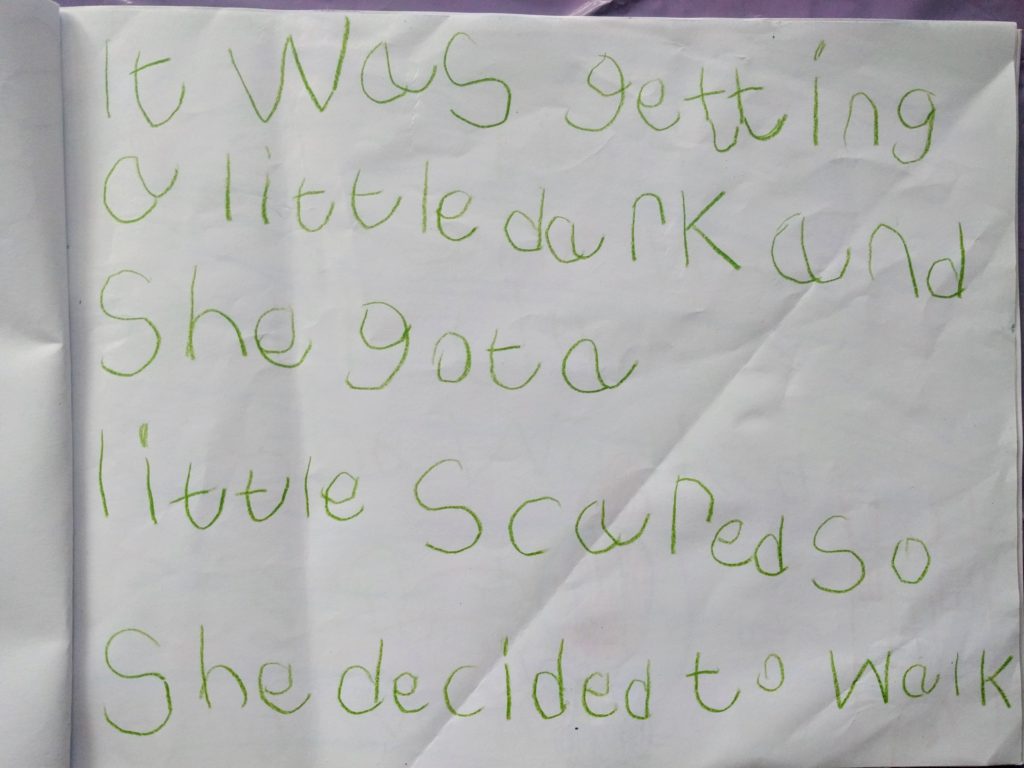 It was getting
a little dark and
She got a
little Scared so
She decided to walk